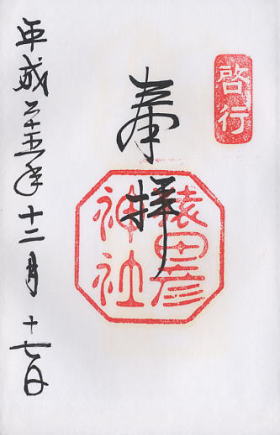 啓行
奉拝
猿田彦
神社
平成二十五年十二月十七日